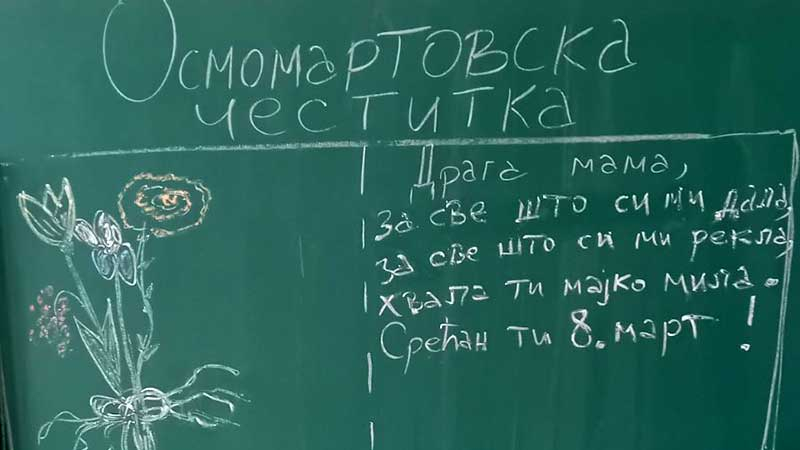 Осмомартовска
честитка
Драга мама,
за све што си ми дала,
за све што си ми рекла,
хвала ти мајко мила.
Срећан ти 8. март !